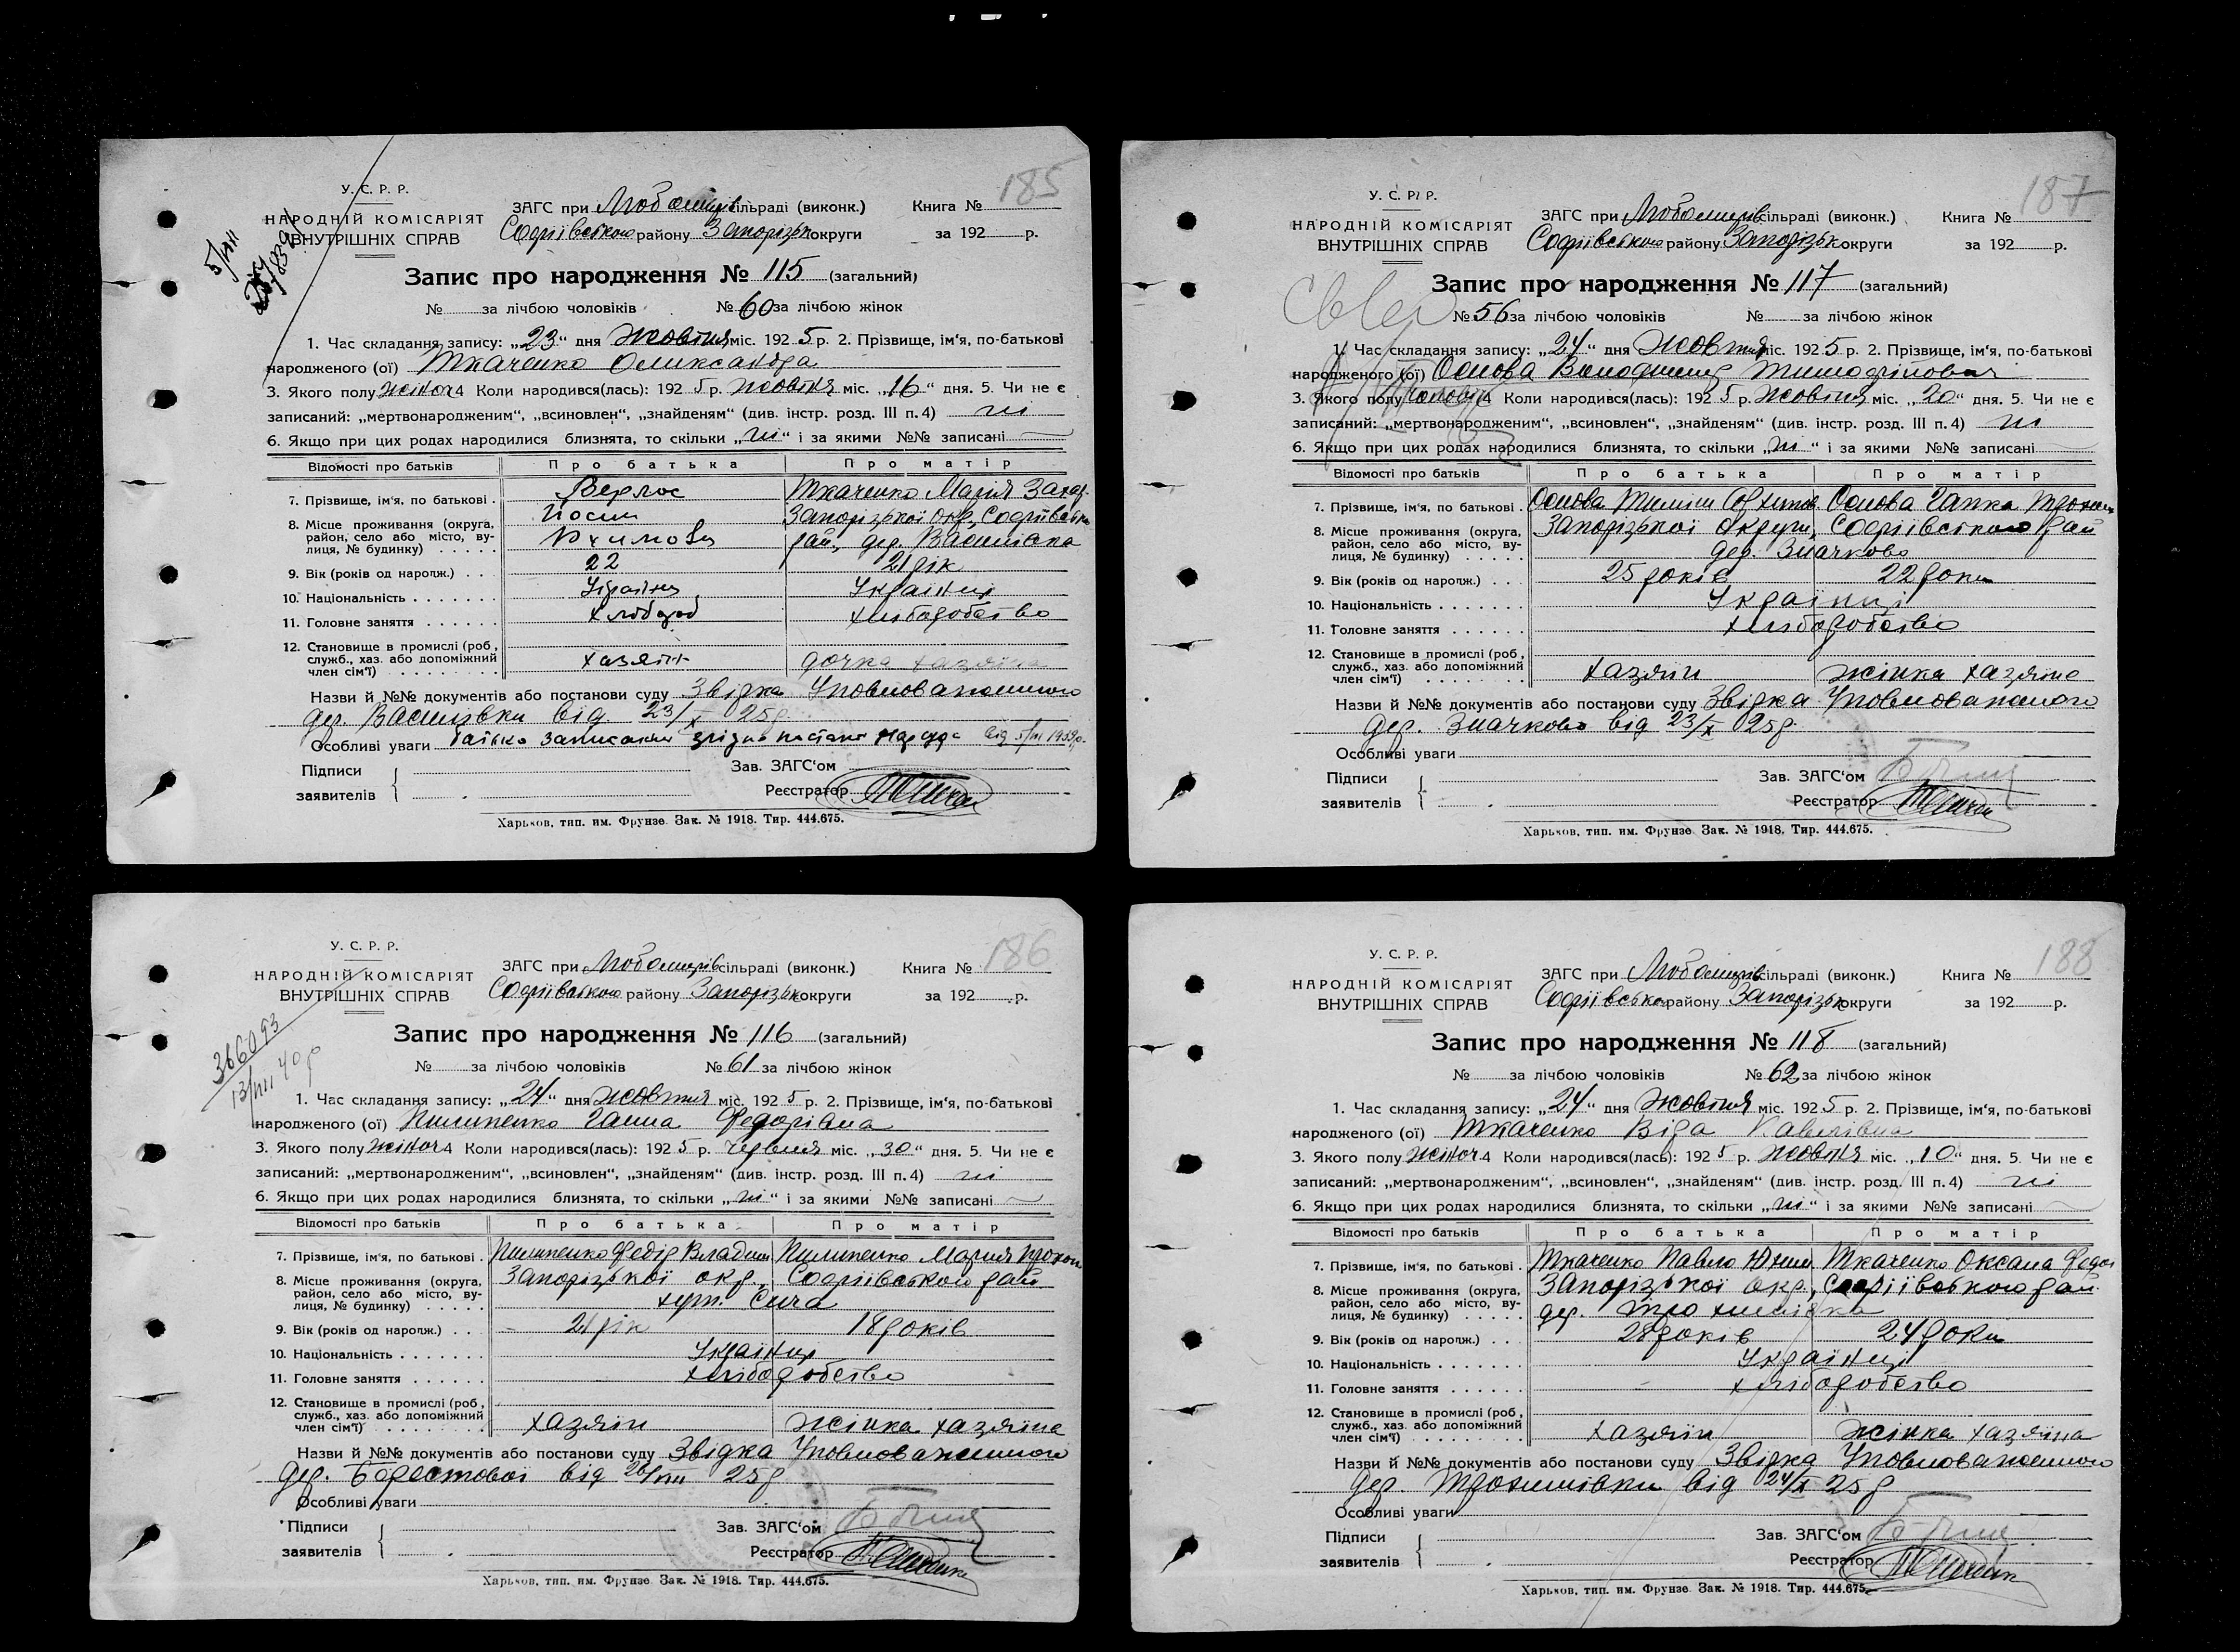 185
У. С. Р. Р.
НАРОДНІЙ КОМІСАРІЯТ
ВНУТРІШНІХ СПРАВ
ЗАГС при Любомирів сільраді (виконк.) Книга №
Софіївського району Запорізьк округи за 192 р.
Запис про народження № 115 (загальний)
№ за лічбою чоловіків № 60 за лічбою жінок
1. Час складання запису: „23“ дня Жовтня міс. 1925 р. 2. Прізвище, ім'я, по-батькові
народженого (ої) Ткаченко Олександра
3. Якого полу жіноч 4 Коли народився(лась): 1925 р. Жовтня міс. „16“ дня. 5. Чи не є
записаний: „мертвонародженим“, „всиновлен“, „знайденям“ (див. інстр. розд. III п. 4) ні
6. Якщо при цих родах народилися близнята, то скільки „ні“ і за якими №№ записані
Відомості про батьків Про батька Про матір
7. Прізвище, ім'я, по батькові Верлос Йосип Ткаченко Марія Захар.
8. Місце проживання (округа, район, село або місто, вулиця, № будинку) Запорізької окр., Софіївськ
рай, дер. Василівка
9. Вік (років од народж.) 22 21 рік
10. Національність Українці
11. Головне заняття хлібороб хліборобство
12. Становище в промислі (роб, служб., хаз. або допоміжний член сім'ї) хазяїн дочка хазяїна
Назви й №№ документів або постанови суду Звідка Уповноваженного
дер. Василівки від 23/X 25 р.
Особливі уваги Батько записаний згідно постанов Нарсуда від
Підписи
заявителів
Зав. ЗАГС'ом
Реєстратор
Харьков, тип. им. Фрунзе. Зак. № 1918. Тир. 444.675.
187
У. С. Р. Р.
НАРОДНІЙ КОМІСАРІЯТ
ВНУТРІШНІХ СПРАВ
ЗАГС при Любомирів сільраді (виконк.) Книга №
Софіївського району Запорізьк округи за 192 р.
Запис про народження № 117 (загальний)
№ 56 за лічбою чоловіків № за лічбою жінок
1. Час складання запису: „24“ дня Жовтня міс. 1925 р. 2. Прізвище, ім'я, по-батькові
народженого (ої) Осиова Володимир Тимофійович
3. Якого полу чоловіч 4 Коли народився(лась): 1925 р. Жовтня міс. „20“ дня. 5. Чи не є
записаний: „мертвонародженим“, „всиновлен“, „знайденям“ (див. інстр. розд. III п. 4) ні
6. Якщо при цих родах народилися близнята, то скільки „ні“ і за якими №№ записані
Відомості про батьків Про батька Про матір
7. Прізвище, ім'я, по батькові Осиова Осиова Ганна
8. Місце проживання (округа, район, село або місто, вулиця, № будинку) Запорізької округи, Софіївського рай
дер. Значково
9. Вік (років од народж.) 25 років 22 роки
10. Національність Українці
11. Головне заняття хліборобство
12. Становище в промислі (роб, служб., хаз. або допоміжний член сім'ї) хазяїн жінка хазяїна
Назви й №№ документів або постанови суду Звідка Уповноваженого
дер. Значково від 23/X 25 р.
Особливі уваги
Підписи
заявителів
Зав. ЗАГС'ом
Реєстратор
Харьков, тип. им. Фрунзе. Зак. № 1918. Тир. 444.675.
186
366093
13/VIII 40 р
У. С. Р. Р.
НАРОДНІЙ КОМІСАРІЯТ
ВНУТРІШНІХ СПРАВ
ЗАГС при Любомирів сільраді (виконк.) Книга №
Софіївського району Запорізьк округи за 192 р.
Запис про народження № 116 (загальний)
№ за лічбою чоловіків № 61 за лічбою жінок
1. Час складання запису: „24“ дня Жовтня міс. 1925 р. 2. Прізвище, ім'я, по-батькові
народженого (ої) Пилипенко Ганна Федорівна
3. Якого полу жіноч 4 Коли народився(лась): 1925 р. Червня міс. „30“ дня. 5. Чи не є
записаний: „мертвонародженим“, „всиновлен“, „знайденям“ (див. інстр. розд. III п. 4) ні
6. Якщо при цих родах народилися близнята, то скільки „ні“ і за якими №№ записані
Відомості про батьків Про батька Про матір
7. Прізвище, ім'я, по батькові Пилипенко Федір Владим Пилипенко Мария Прокоп
8. Місце проживання (округа, район, село або місто, вулиця, № будинку) Запорізької окр., Софіївського рай
хут. Сича
9. Вік (років од народж.) 21 рік 18 років
10. Національність Українці
11. Головне заняття хліборобство
12. Становище в промислі (роб, служб., хаз. або допоміжний член сім'ї) хазяїн жінка хазяїна
Назви й №№ документів або постанови суду Звідка Уповноваженного
дер. Берестової від 26/VIII 25 р
Особливі уваги
Підписи
заявителів
Зав. ЗАГС'ом
Реєстратор
Харьков, тип. им. Фрунзе. Зак. № 1918. Тир. 444.675.
188
У. С. Р. Р.
НАРОДНІЙ КОМІСАРІЯТ
ВНУТРІШНІХ СПРАВ
ЗАГС при Любомирів сільраді (виконк.) Книга №
Софіївського району Запорізьк округи за 192 р.
Запис про народження № 118 (загальний)
№ за лічбою чоловіків № 62 за лічбою жінок
1. Час складання запису: „24“ дня Жовтня міс. 1925 р. 2. Прізвище, ім'я, по-батькові
народженого (ої) Ткаченко Віра Павлівна
3. Якого полу жіноч 4 Коли народився(лась): 1925 р. Жовтня міс. „10“ дня. 5. Чи не є
записаний: „мертвонародженим“, „всиновлен“, „знайденям“ (див. інстр. розд. III п. 4) ні
6. Якщо при цих родах народилися близнята, то скільки „ні“ і за якими №№ записані
Відомості про батьків Про батька Про матір
7. Прізвище, ім'я, по батькові Ткаченко Павло Юхим Ткаченко Оксана Федо
8. Місце проживання (округа, район, село або місто, вулиця, № будинку) Запорізької окр., Софіївського рай.
дер. Трохимівка
9. Вік (років од народж.) 28 років 24 роки
10. Національність Українці
11. Головне заняття хліборобство
12. Становище в промислі (роб, служб., хаз. або допоміжний член сім'ї) хазяїн жінка хазяїна
Назви й №№ документів або постанови суду Звідка Уповноваженного
дер. Трохимівки від 24/X 25 р
Особливі уваги
Підписи
заявителів
Зав. ЗАГС'ом
Реєстратор
Харьков, тип. им. Фрунзе. Зак. № 1918. Тир. 444.675.